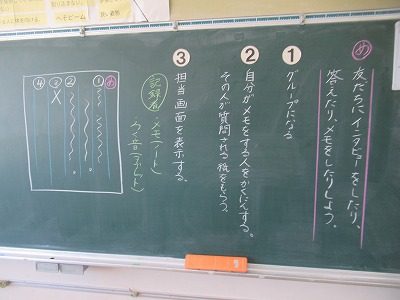 へそビーム
め
友だちにインタビューをしたり、
答えたり、メモをしたりしよう。
1
グループになる
2
自分がメモをする人をかくにんする。
その人が質問される紙をもらう。
3
担当画面を表示する。
記録者
・メモ(ノート)
・ろく音(タブレット)
め
①
②
④